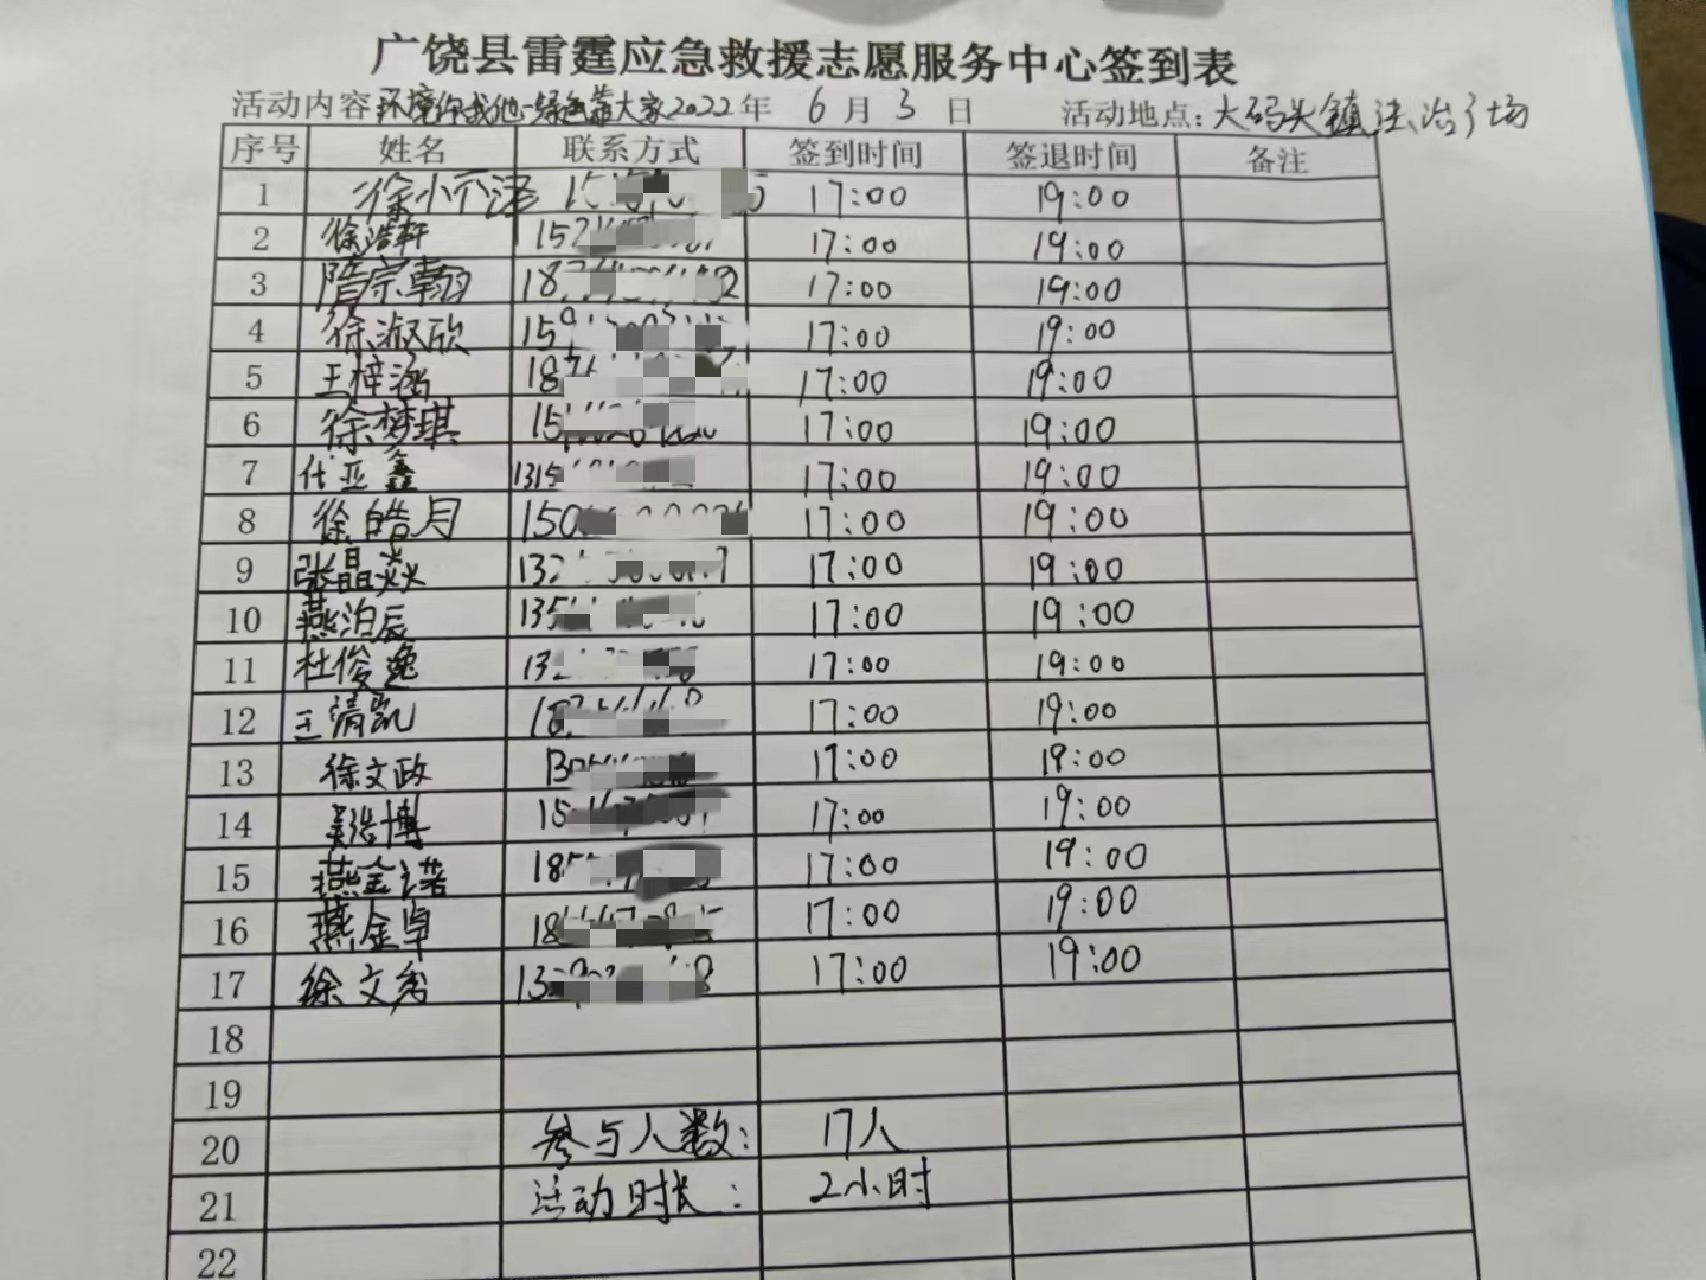 广饶县雷霆应急救援志愿服务中心签到表
活动内容 环境你我他 绿色靠大家 2022年 6月3日 活动地点:大码头镇法治广场
序号 姓名 联系方式 签到时间 签退时间 备注
1 徐小 泽 17:00 19:00
2 徐浩轩 152 17:00 19:00
3 隋宗翰 18 17:00 19:00
4 徐淑欣 159 17:00 19:00
5 王梓涵 187 17:00 19:00
6 徐梦琪 15 17:00 19:00
7 代亚鑫 1315 17:00 19:00
8 徐皓月 150 17:00 19:00
9 张晶焱 132 17:00 19:00
10 燕泊辰 135 17:00 19:00
11 杜俊逸 132 17:00 19:00
12 王清凯 18 17:00 19:00
13 徐文政 13 17:00 19:00
14 吴浩博 15 17:00 19:00
15 燕金诺 18 17:00 19:00
16 燕金卓 18 17:00 19:00
17 徐文秀 13 17:00 19:00
18
19
20 参与人数: 17人
21 活动时长: 2小时
22